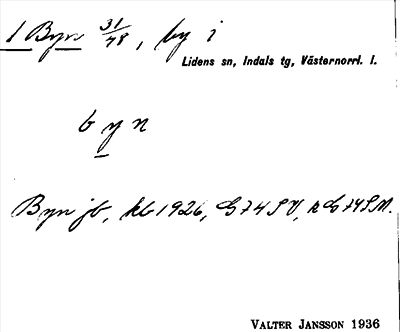 1 Byn 31/48, by i
Lidens sn, Indals tg, Västernorrl. l.
byn
Byn jb, kb 1926, G74SV, RG74SM.
VALTER JANSSON 1936